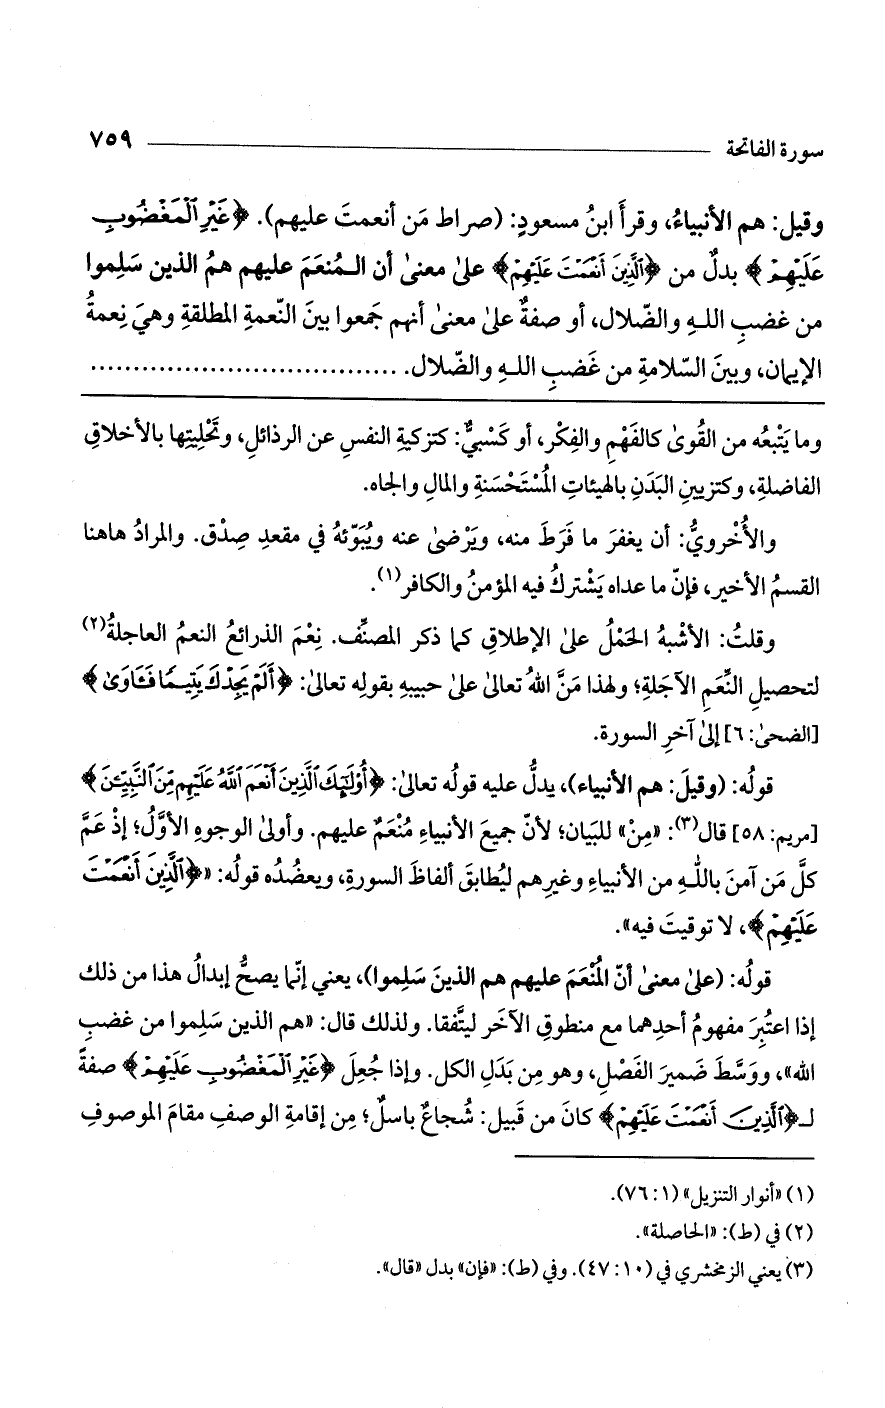 سورة الفاتحة ٧٥٩
وقيل: هم الأنبياءُ، وقرأَ ابنُ مسعودٍ: (صراط مَن أنعمتَ عليهم). ﴿غَيْرِ الْمَغْضُوبِ
عَلَيْهِمْ﴾ بدلٌ من ﴿الَّذِينَ أَنْعَمْتَ عَلَيْهِمْ﴾ علىٰ معنىٰ أن الـمُنعَمَ عليهم همُ الذين سَلِموا
من غضبِ اللـهِ والضّلال، أو صفةٌ علىٰ معنىٰ أنهم جَمعوا بينَ النّعمةِ المطلقةِ وهيَ نِعمةُ
الإيمان، وبينَ السّلامةِ من غَضبِ اللـهِ والضّلال. ..................................
وما يَتْبعُه من القُوىٰ كالفَهْمِ والفِكْر، أو كَسْبيٌّ: كتزكيةِ النفس عن الرذائلِ، وتَحْلِيتِها بالأخلاقِ
الفاضلةِ، وكتزيينِ البَدَنِ بالهيئاتِ المُسْتَحْسَنةِ والمالِ والجاه.
والأُخْرويُّ: أن يغفرَ ما فَرَطَ منه، ويَرْضىٰ عنه ويُبَوّئهُ في مقعدِ صِدْق. والمرادُ هاهنا
القسمُ الأخير، فإنّ ما عداه يَشْتركُ فيه المؤمنُ والكافر(١).
وقلتُ: الأشْبهُ الحَمْلُ علىٰ الإطلاقِ كما ذكر المصنِّف. نِعْمَ الذرائعُ النعمُ العاجلةُ(٢)
لتحصيلِ النِّعَمِ الآجَلةِ؛ ولهذا مَنَّ اللهُ تعالىٰ علىٰ حبيبهِ بقولِه تعالىٰ: ﴿أَلَمْ يَجِدْكَ يَتِيمًا فَـَٔاوَىٰ﴾
[الضحىٰ: ٦] إلىٰ آخرِ السورة.
قولُه: (وقيلَ: هم الأنبياء)، يدلُّ عليه قولُه تعالىٰ: ﴿أُوْلَٰٓئِكَ الَّذِينَ أَنْعَمَ اللَّهُ عَلَيْهِم مِّنَ النَّبِيِّـۧنَ﴾
[مريم: ٥٨] قال(٣): «مِنْ» للبَيان؛ لأنّ جميعَ الأنبياءِ مُنْعَمٌ عليهم. وأولىٰ الوجوهِ الأوَّلُ؛ إذْ عَمَّ
كلَّ مَن آمنَ باللـهِ من الأنبياءِ وغيرِهم ليُطابقَ ألفاظَ السورةِ، ويعضُدُه قولُه: «﴿الَّذِينَ أَنْعَمْتَ
عَلَيْهِمْ﴾، لا توقيتَ فيه».
قولُه: (علىٰ معنىٰ أنّ المُنْعَمَ عليهم هم الذينَ سَلِموا)، يعني إنّما يصحُّ إبدالُ هذا من ذلك
إذا اعتُبِرَ مفهومُ أحدِهما مع منطوقِ الآخَر ليتَّفقا. ولذلك قال: «هم الذين سَلِموا من غضبِ
الله»، ووَسَّطَ ضميرَ الفَصْلِ، وهو مِن بَدَلِ الكل. وإذا جُعِلَ ﴿غَيْرِ الْمَغْضُوبِ عَلَيْهِمْ﴾ صفةً
لـ﴿الَّذِينَ أَنْعَمْتَ عَلَيْهِمْ﴾ كانَ من قَبيل: شُجاعٌ باسلٌ؛ مِن إقامةِ الوصفِ مقامَ الموصوفِ
(١) «أنوار التنزيل» (١: ٧٦).
(٢) في (ط): «الحاصلة».
(٣) يعني الزمخشري في (١٠: ٤٧). وفي (ط): «فإن» بدل «قال».